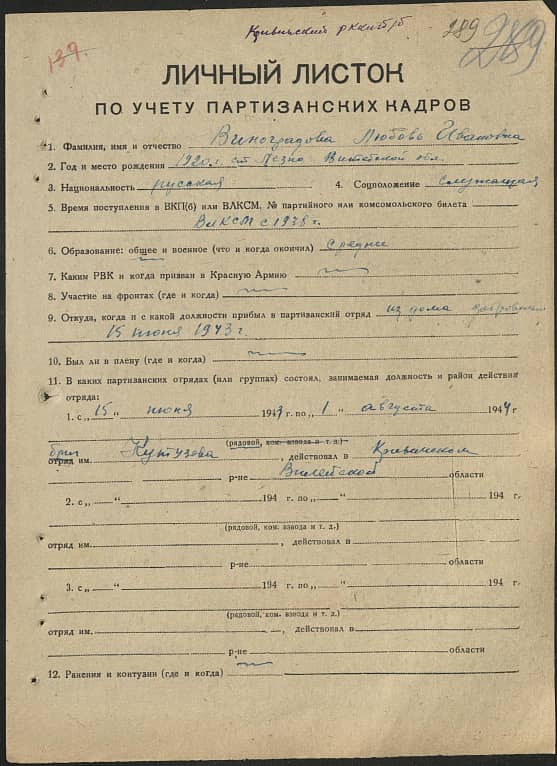 139.
289
289
ЛИЧНЫЙ ЛИСТОК
ПО УЧЕТУ ПАРТИЗАНСКИХ КАДРОВ
1. Фамилия, имя и отчество Виноградова Любовь Ивановна
2. Год и место рождения 1920 г. ст Лезно Витебской обл.
3. Национальность русская 4. Соцположение служащая
5. Время поступления в ВКП(б) или ВЛКСМ, № партийного или комсомольского билета
ВЛКСМ с 1938 г.
6. Образование: общее и военное (что и когда окончил) средне
7. Каким РВК и когда призван в Красную Армию
8. Участие на фронтах (где и когда)
9. Откуда, когда и с какой должности прибыл в партизанский отряд из дома
15 июня 1943 г.
10. Был ли в плену (где и когда)
11. В каких партизанских отрядах (или группах) состоял, занимаемая должность и район действия
отряда:
1. с „ 15 “ июня 1943 г. по „ 1 “ августа 1944 г
(рядовой, ком. взвода и т. д.)
бриг
отряд им. Кутузова , действовал в Кривичском
р-не Вилейской области
2. с „ “ 194 г. по „ “ 194 г.
(рядовой, ком. взвода и т. д.)
отряд им. , действовал в
р-не области
3. с „ “ 194 г. по „ “ 194 г.
(рядовой, ком. взвода и т. д.)
отряд им. , действовал в
р-не области
12. Ранения и контузии (где и когда)